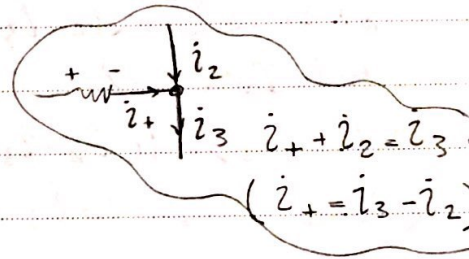 + -
i₂
i₊
i₃
i₊ + i₂ = i₃
(i₊ = i₃ - i₂)